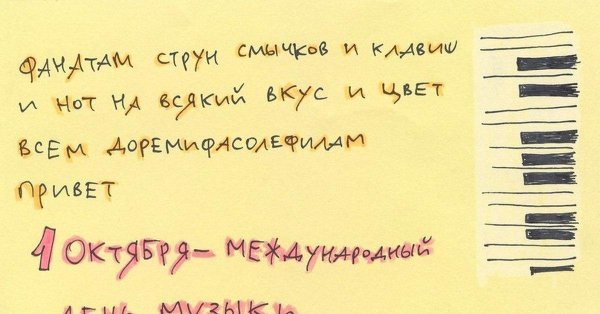 ФАНАТАМ СТРУН СМЫЧКОВ И КЛАВИШ
И НОТ НА ВСЯКИЙ ВКУС И ЦВЕТ
ВСЕМ ДОРЕМИФАСОЛЕФИЛАМ
ПРИВЕТ
1 ОКТЯБРЯ – МЕЖДУНАРОДНЫЙ
ДЕНЬ МУЗЫКИ